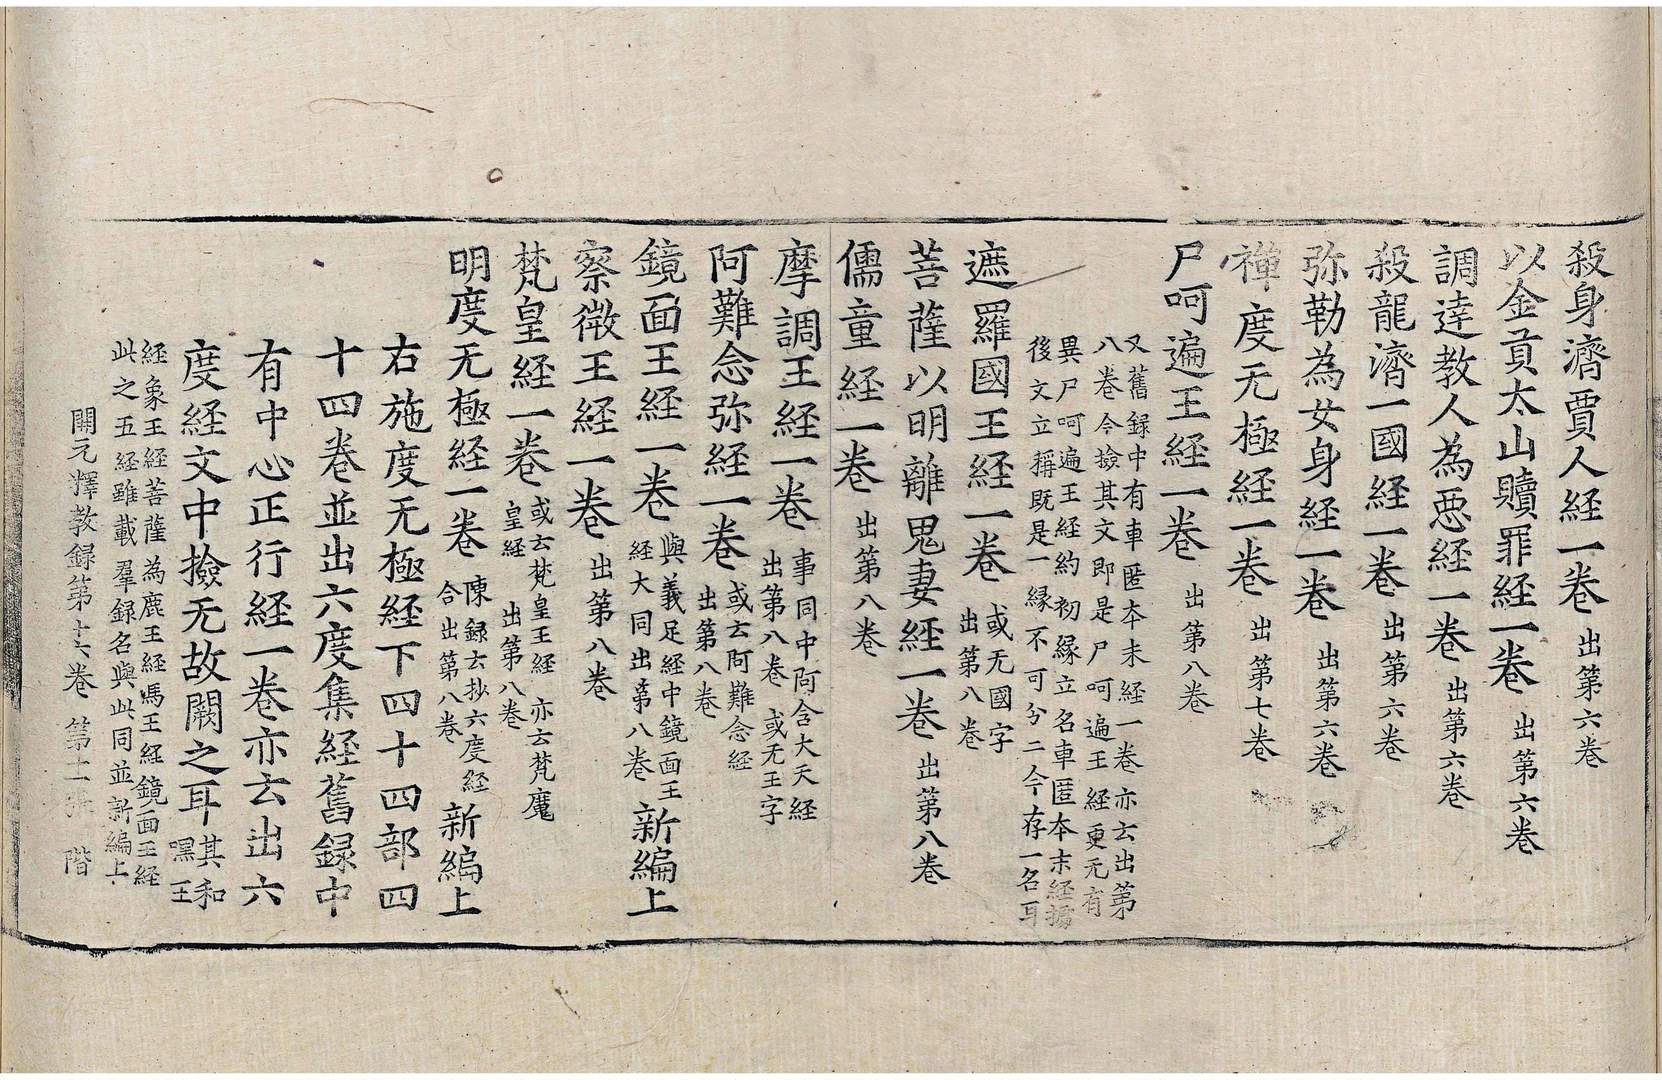 殺身濟賈人経一巻 出第六巻
以金貢太山贖罪経一巻 出第六巻
調達教人為悪経一巻 出第六巻
殺龍濟一國経一巻 出第六巻
弥勒為女身経一巻 出第六巻
禅度无極経一巻 出第七巻
尸呵遍王経一巻 出第八巻
又舊録中有車匿夲末経一巻亦云出第
八巻今撿其文即是尸呵遍王経更无有
異尸呵遍王経約初縁立名車匿夲末経據
後文立搆既是一縁不可分二今存一名耳
遮羅國王経一巻 或无國字
出第八巻
菩薩以明離鬼妻経一巻 出第八巻
儒童経一巻 出第八巻
摩調王経一巻 事同中阿含大天経
出第八巻 或无王字
阿難念弥経一巻 或云阿難念経
出第八巻
鏡面王経一巻 與義足経中鏡面王
経大同出第八巻 新編上
察微王経一巻 出第八巻
梵皇経一巻 或云梵皇王経 亦云梵魔
皇経 出第八巻
明度无極経一巻 陳録云抄六度経
合出第八巻 新編上
右施度无極経下四十四部四
十四巻並出六度集経舊録中
有中心正行経一巻亦云出六
度経文中撿无故闕之耳 其和
嘿王
経象王経菩薩為鹿王経馬王経鏡面王経
此之五経雖載羣録名與此同並新編上
開元釋教録第十六巻 第十二張 階